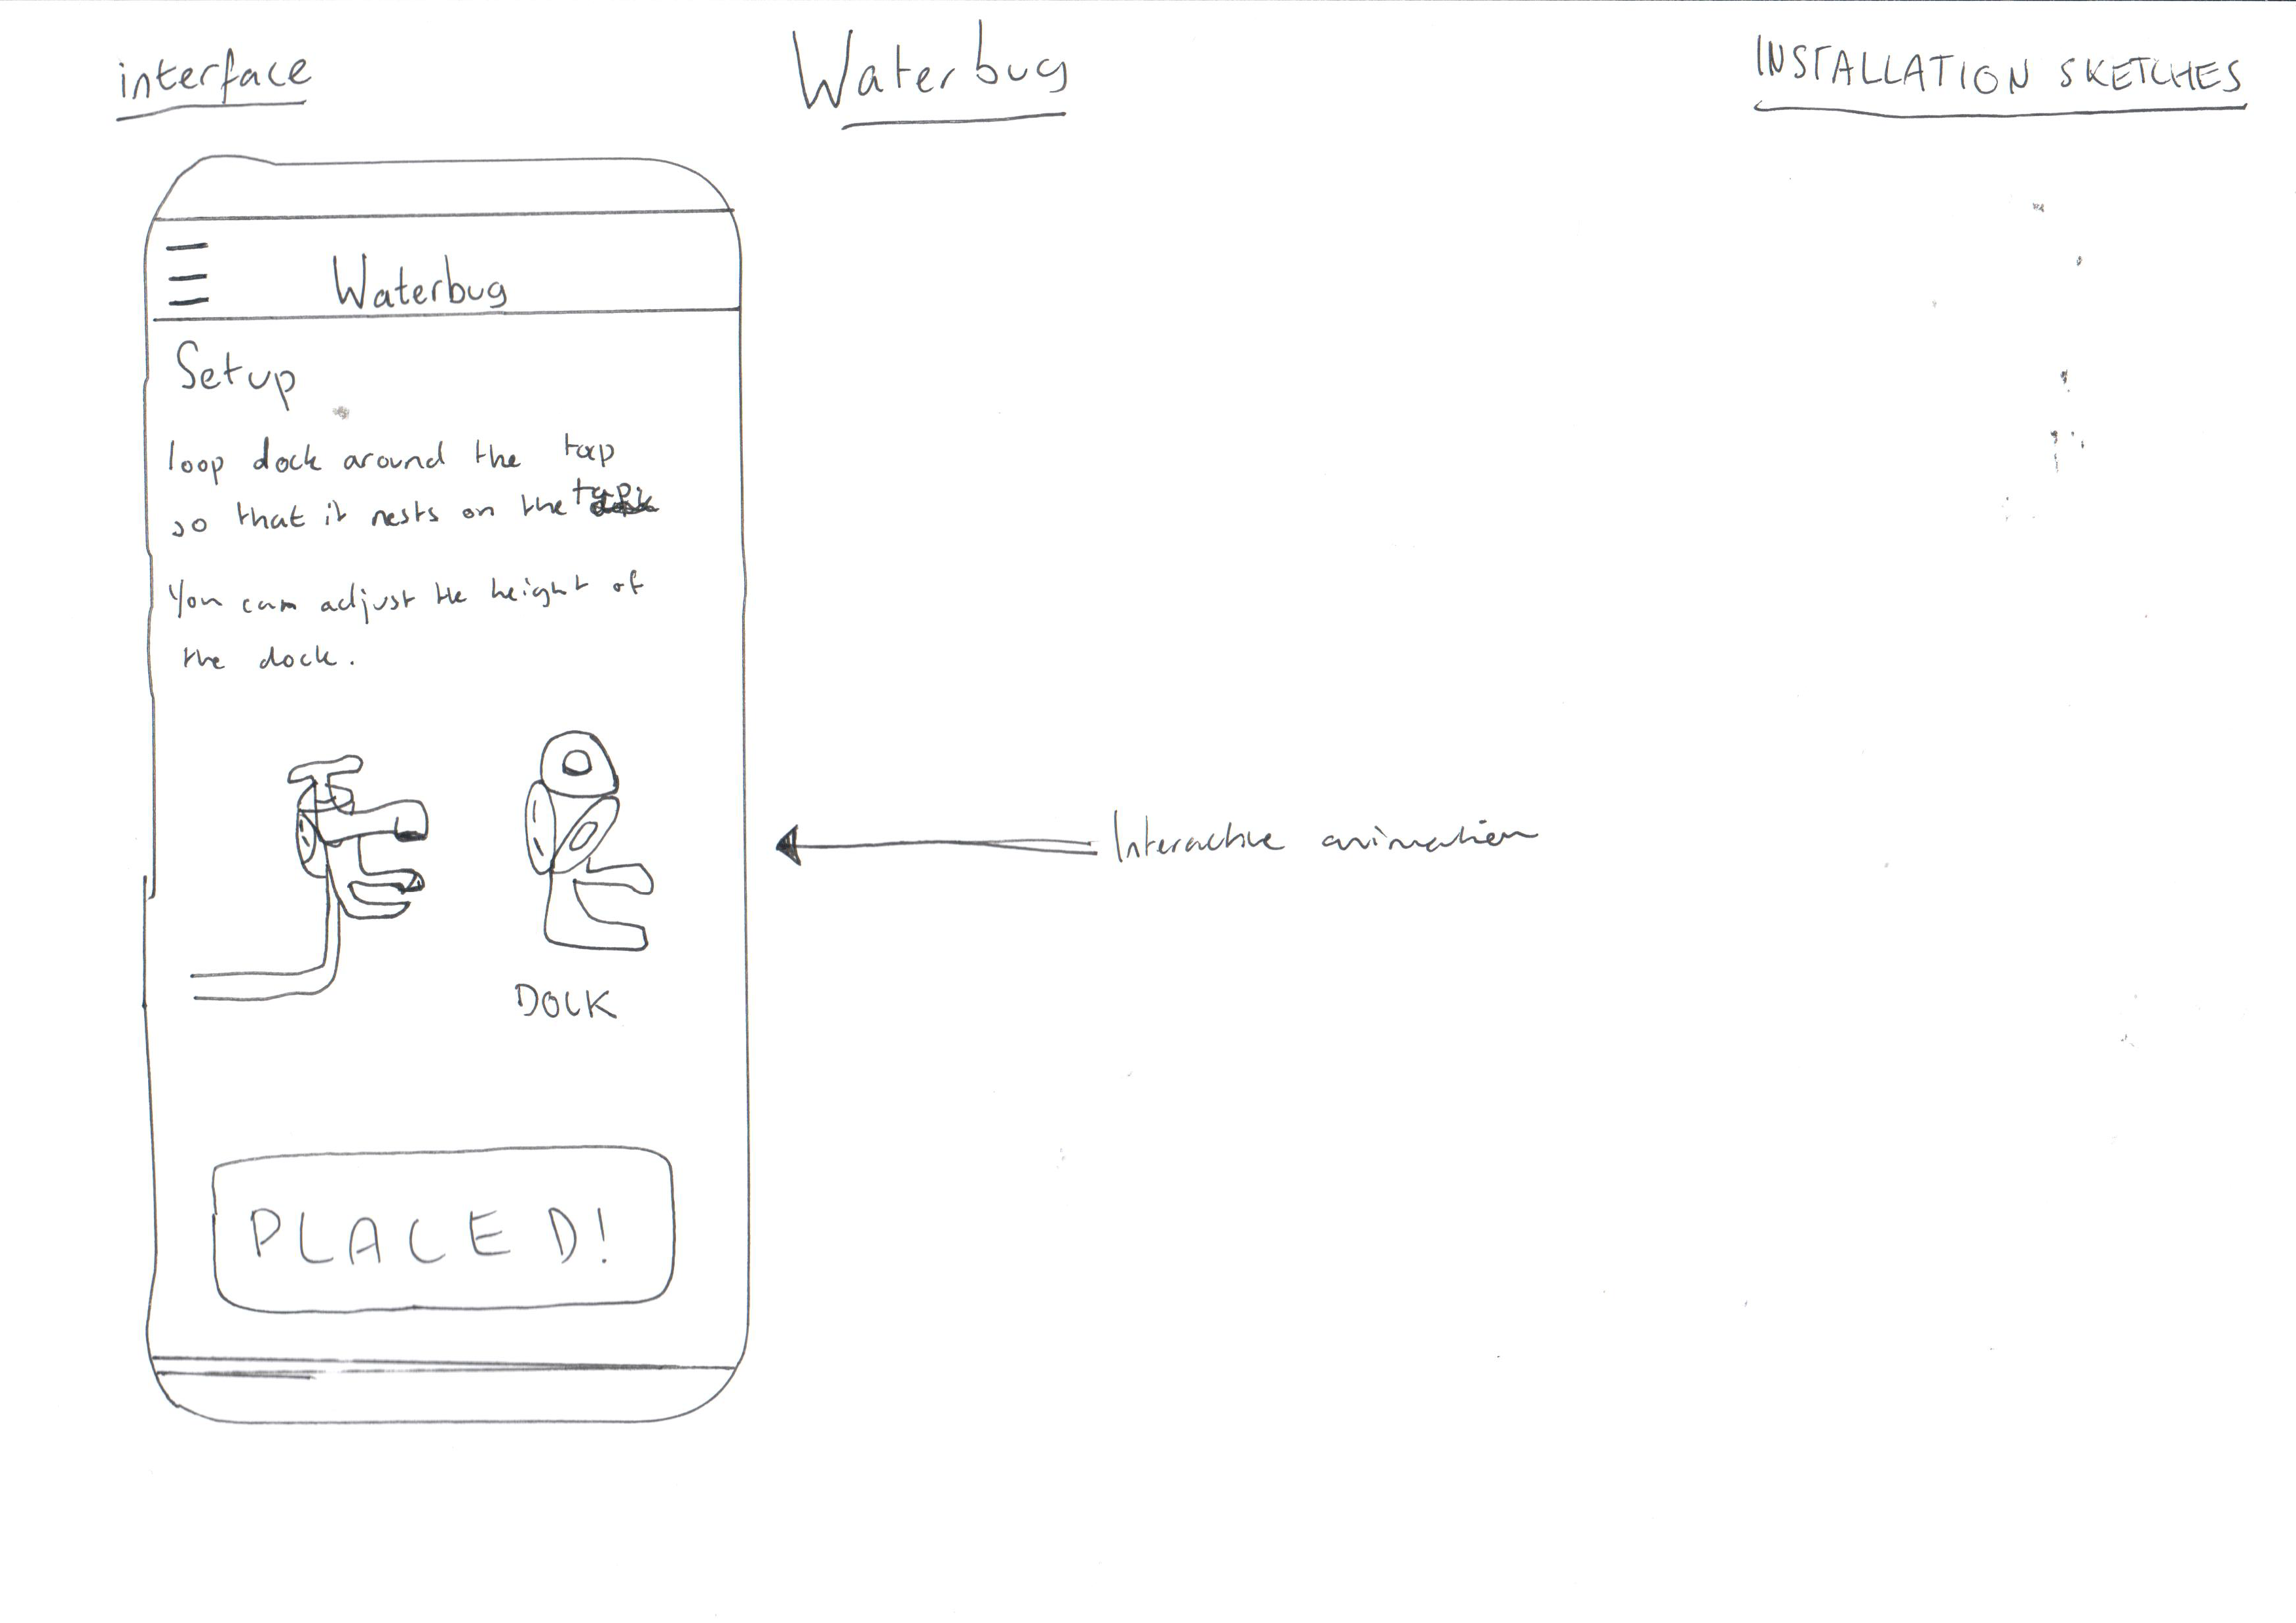 interface
Waterbug
INSTALLATION SKETCHES
Waterbug
Setup
loop dock around the tap
so that it nests on the tap
You can adjust the height of
the dock.
Interactive animation
DOCK
PLACED!